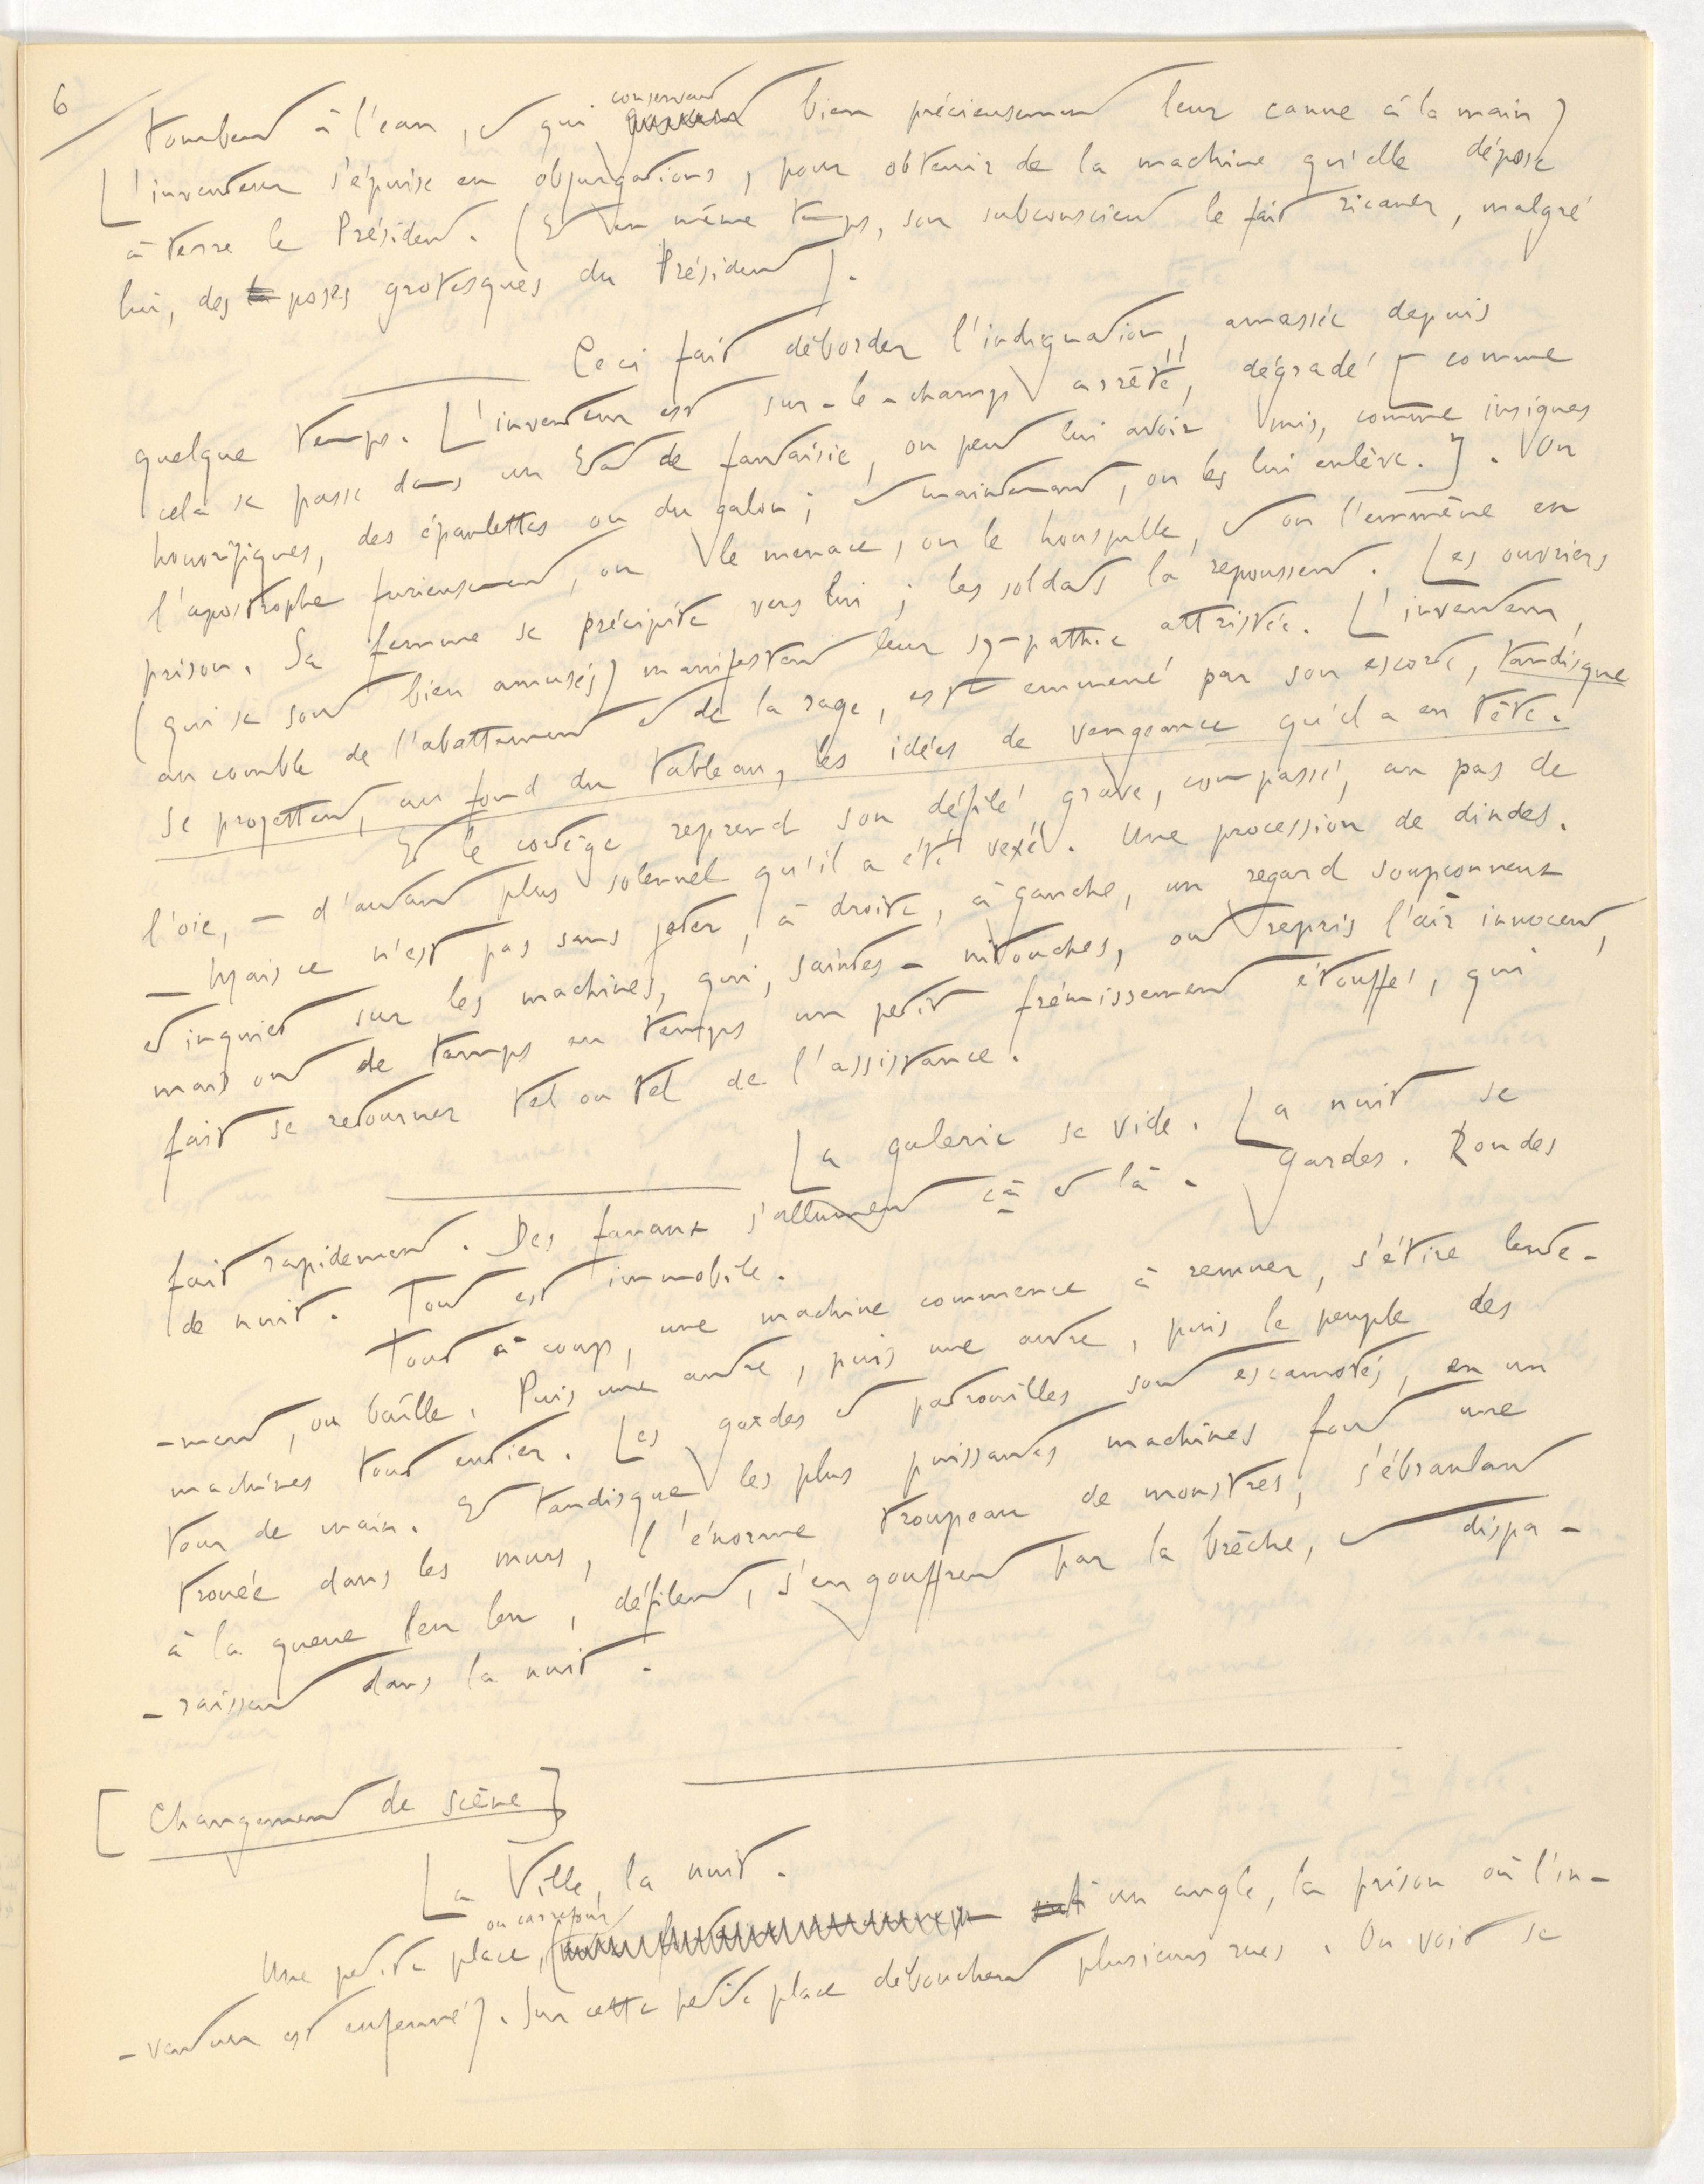 6
conservent
tombent à l'eau, et qui gardent bien précieusement leur canne à la main)
L'inventeur s'épuise en objurgations, pour obtenir de la machine qu'elle dépose
à terre le Président. (Et en même temps, son subconscient le fait ricaner, malgré
lui, des la poses grotesques du Président).
Ceci fait déborder l'indignation, amassée depuis
quelque temps. L'inventeur est sur-le-champ arrêté, dégradé [comme
cela se passe dans un Etat de fantaisie, on peut lui avoir mis, comme insignes
honorifiques, des épaulettes ou du galon ; et maintenant, on les lui enlève.]. On
l'apostrophe furieusement, on le menace, on le houspille, et on l'emmène en
prison. Sa femme se précipite vers lui ; les soldats la repoussent. Les ouvriers
(qui se sont bien amusés) manifestent leur sympathie attristée. L'inventeur,
au comble de l'abattement et de la rage, est emmené par son escorte, tandisque
se projettent, au fond du tableau, les idées de vengeance qu'il a en tête.
Et le cortège reprend son défilé grave, compassé, au pas de
l'oie, - d'autant plus solennel qu'il a été vexé. Une procession de dindes.
- Mais ce n'est pas sans jeter, à droite, à gauche, un regard soupçonneux
et inquiet sur les machines, qui, saintes-nitouches, ont repris l'air innocent,
mais ont de temps en temps un petit frémissement étouffé, qui
fait se retourner tel ou tel de l'assistance.
La galerie se vide. La nuit se
fait rapidement. Des fanaux s'allument çà et là. Gardes. Rondes
de nuit. Tout est immobile.
Tout à coup, une machine commence à remuer, s'étire lente-
-ment, ou bâille. Puis une autre, puis une autre, puis le peuple des
machines tout entier. Les gardes et patrouilles sont escamotés, en un
tour de main. Et tandisque les plus puissantes machines font une
trouée dans les murs, l'énorme troupeau de monstres, s'ébranlant
à la queue leu leu, défilent, s'engouffrent par la brèche, et dispa-
-raissent dans la nuit.
[Changement de scène]
La Ville, la nuit.
ou carrefour
Une petite place, (un angle, la prison où l'in-
-venteur est enfermé). Sur cette petite place débouchent plusieurs rues. On voit se